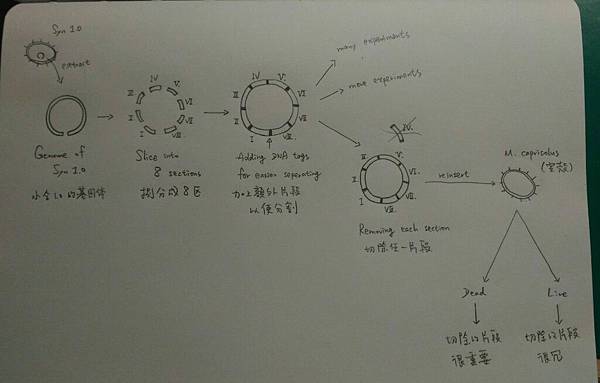 Syn 1.0
extract
Genome of
Syn 1.0
小金 1.0 的基因体
I
II
III
IV
V.
VI
VII
VIII.
Slice into
8 sections
拆分成 8 区
I
II
III
IV
V.
VI
VII
VIII.
Adding DNA tags
for easier seperating
加上額外片段
以便分割
many experiments
more experiments
IV.
I
II
III
V.
VI.
VII
VIII.
Removing each section
切除任一片段
reinsert
M. capricolus
(空殼)
Dead
切除的片段
很重要
Live
切除的片段
很冗